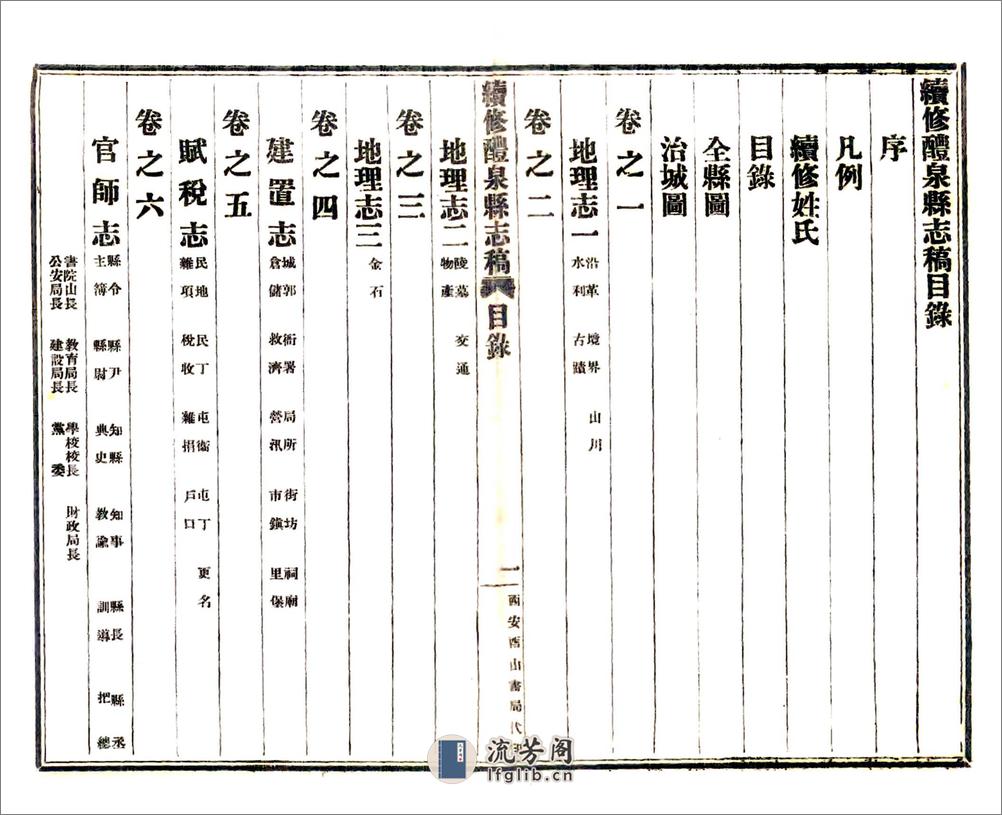 續修醴泉縣志稿目錄
序
凡例
續修姓氏
目錄
全縣圖
治城圖
卷之一
地理志一 沿革 境界 山川
水利 古蹟
卷之二
續修醴泉縣志稿 目錄 一 西安酉山書局代印
地理志二 陵墓 交通
物產
卷之三
地理志三 金石
卷之四
建置志 城郭 衙署 局所 街坊 祠廟
倉儲 救濟 營汛 市鎮 里堡
卷之五
賦稅志 民地 民丁 屯衛 屯丁 更名
雜項 稅收 雜捐 戶口
卷之六
官師志 縣令 縣尹 知縣 知事 縣長 縣丞
主簿 縣尉 典史 教諭 訓導 把總
書院山長 教育局長 學校校長 財政局長
公安局長 建設局長 黨委
流芳阁
lfglib.cn